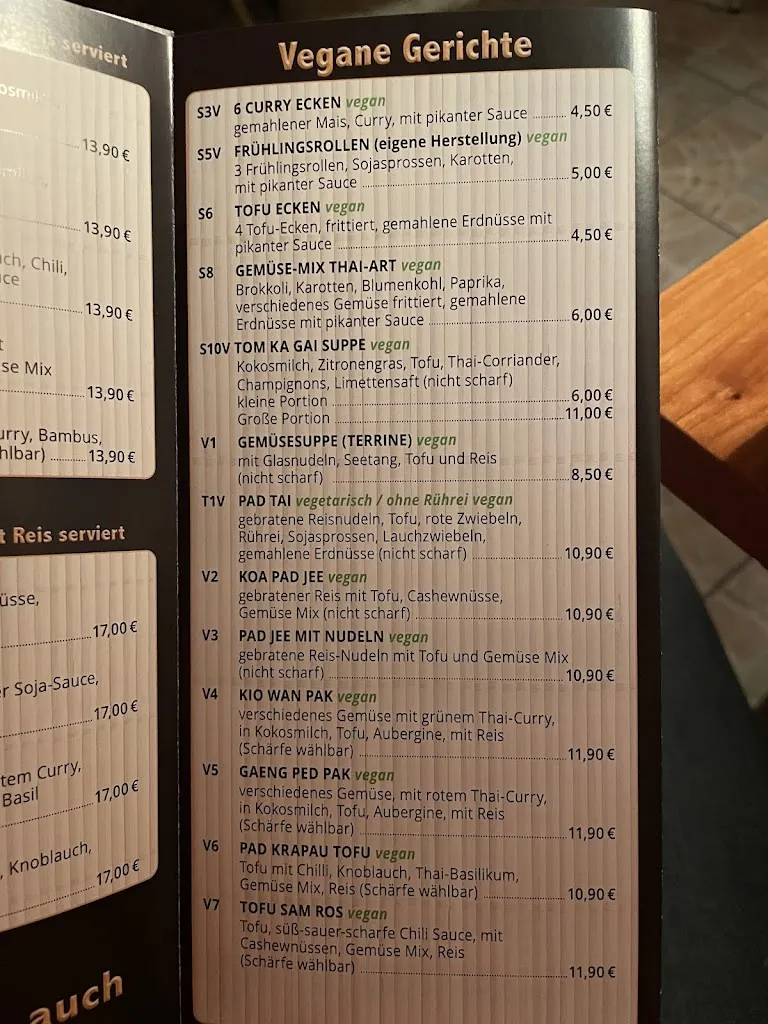 serviert
13,90 €
13,90 €
Chili,
13,90 €
se Mix
13,90 €
Bambus,
13,90 €
Reis serviert
17,00 €
Soja-Sauce,
17,00 €
Curry,
Basil
17,00 €
Knoblauch,
17,00 €
auch
Vegane Gerichte
S3V 6 CURRY ECKEN vegan
gemahlener Mais, Curry, mit pikanter Sauce 4,50 €
S5V FRÜHLINGSROLLEN (eigene Herstellung) vegan
3 Frühlingsrollen, Sojasprossen, Karotten,
mit pikanter Sauce 5,00 €
S6 TOFU ECKEN vegan
4 Tofu-Ecken, frittiert, gemahlene Erdnüsse mit
pikanter Sauce 4,50 €
S8 GEMÜSE-MIX THAI-ART vegan
Brokkoli, Karotten, Blumenkohl, Paprika,
verschiedenes Gemüse frittiert, gemahlene
Erdnüsse mit pikanter Sauce 6,00 €
S10V TOM KA GAI SUPPE vegan
Kokosmilch, Zitronengras, Tofu, Thai-Corriander,
Champignons, Limettensaft (nicht scharf)
kleine Portion 6,00 €
Große Portion 11,00 €
V1 GEMÜSESUPPE (TERRINE) vegan
mit Glasnudeln, Seetang, Tofu und Reis
(nicht scharf) 8,50 €
T1V PAD TAI vegetarisch / ohne Rührei vegan
gebratene Reisnudeln, Tofu, rote Zwiebeln,
Rührei, Sojasprossen, Lauchzwiebeln,
gemahlene Erdnüsse (nicht scharf) 10,90 €
V2 KOA PAD JEE vegan
gebratener Reis mit Tofu, Cashewnüsse,
Gemüse Mix (nicht scharf) 10,90 €
V3 PAD JEE MIT NUDELN vegan
gebratene Reis-Nudeln mit Tofu und Gemüse Mix
(nicht scharf) 10,90 €
V4 KIO WAN PAK vegan
verschiedenes Gemüse mit grünem Thai-Curry,
in Kokosmilch, Tofu, Aubergine, mit Reis
(Schärfe wählbar) 11,90 €
V5 GAENG PED PAK vegan
verschiedenes Gemüse, mit rotem Thai-Curry,
in Kokosmilch, Tofu, Aubergine, mit Reis
(Schärfe wählbar) 11,90 €
V6 PAD KRAPAU TOFU vegan
Tofu mit Chilli, Knoblauch, Thai-Basilikum,
Gemüse Mix, Reis (Schärfe wählbar) 10,90 €
V7 TOFU SAM ROS vegan
Tofu, süß-sauer-scharfe Chili Sauce, mit
Cashewnüssen, Gemüse Mix, Reis
(Schärfe wählbar) 11,90 €